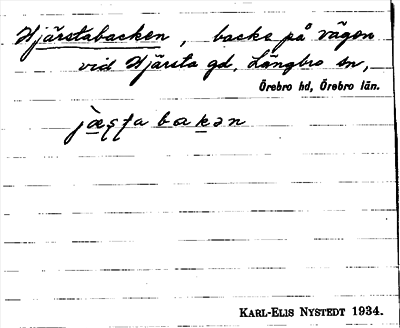 Hjärstabacken, backe på vägen
vid Hjärsta gd, Längbro sn,
Örebro hd, Örebro län.
jæʂʈabakən
KARL-ELIS NYSTEDT 1934.